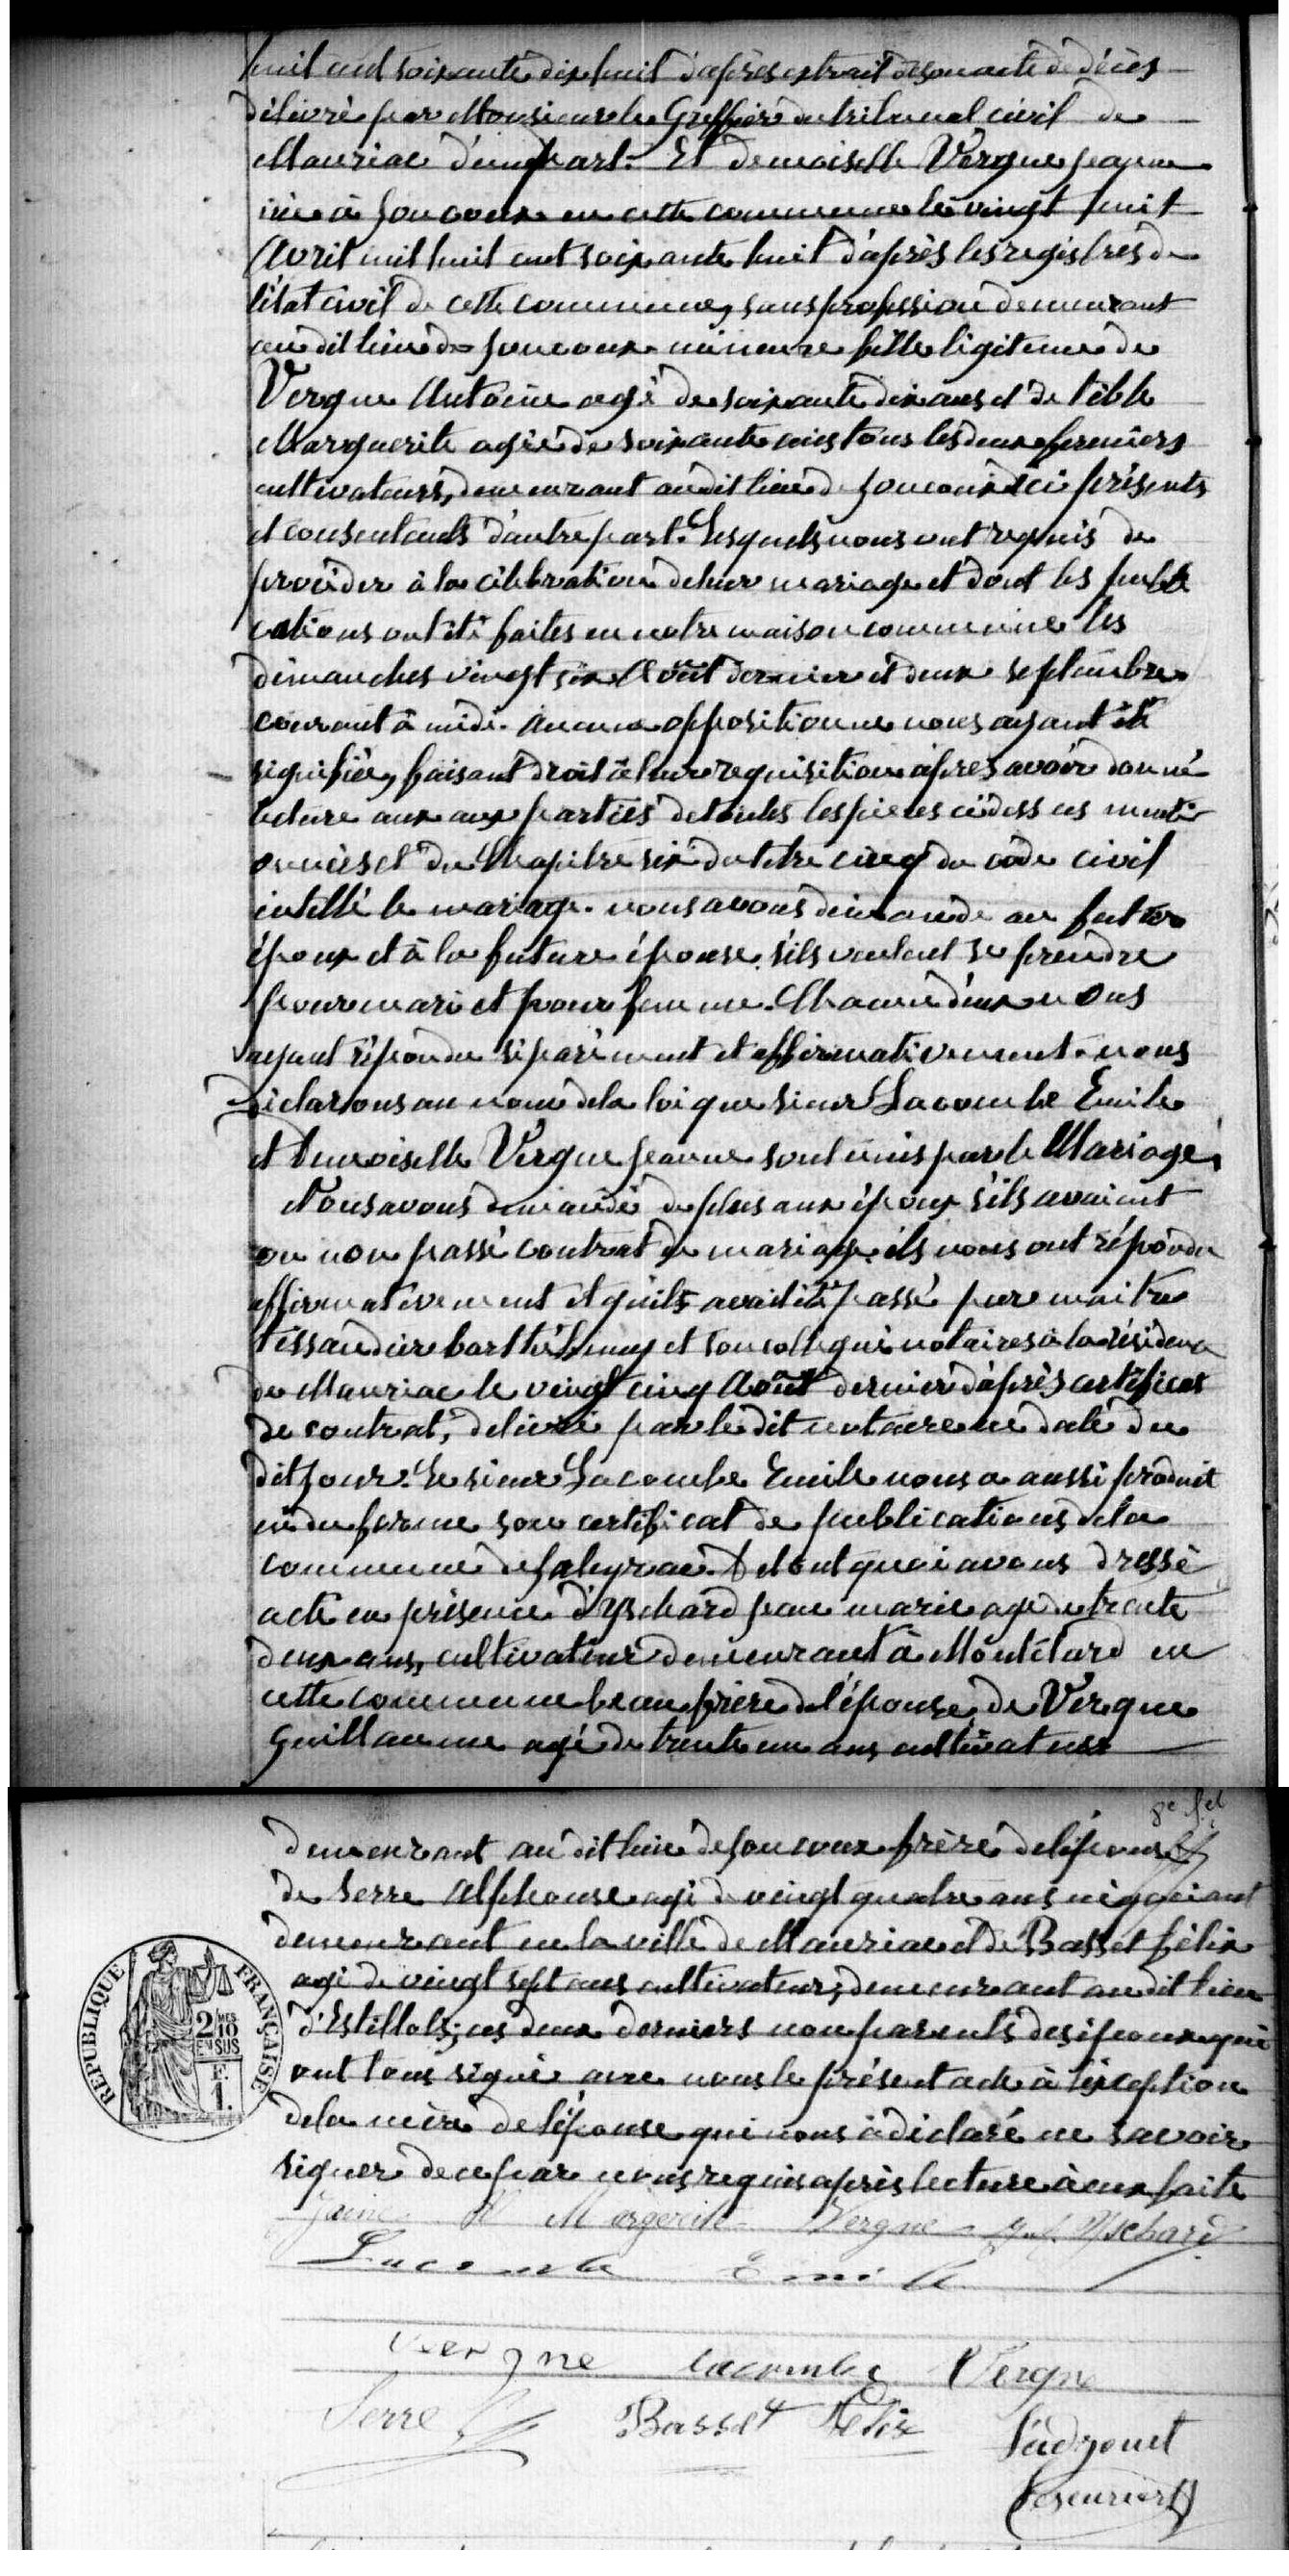 huit cent soixante dix huit d'après extrait de son acte de décès
délivré par Monsieur le Greffier du tribunal civil de
Mauriac d'une part. Et demoiselle Vergne jeanne
née à Joucoux en cette commune le vingt huit
Avril mil huit cent soixante huit d'après les registres de
l'état civil de cette commune, sans profession demeurant
au dit lieu de Joucoux mineure fille légitime de
Vergne Antoine agé de soixante dix ans et de
Marguerite agée de soixante ans tous les deux fermiers
cultivateurs, demeurant au dit lieu de Joucoux ici présents
et consentants d'autre part. Lesquels nous ont requis de
procéder à la célébration de leur mariage et dont les publi
cations ont été faites en notre maison commune les
dimanches vingt six Août dernier et deux septembre
courant à midi. Aucune opposition ne nous ayant été
signifiée, faisant droit à leur requisition après avoir donné
lecture aux aux parties de toutes les pièces cidessus menti
onnées et du Chapitre six du titre cinq du code civil
intitlé le mariage. nous avons demandé au futur
époux et à la future épouse s'ils veulent se prendre
pour mari et pour femme. Chacun d'eux nous
ayant répondu séparément et affirmativement. nous
déclarons au nom de la loi que sieur Lacombe Emile
et Demoiselle Vergne jeanne sont unis par le Mariage.
Nous avons demandé de plus aux époux s'ils avaient
ou non passé contrat de mariage. ils nous ont répondu
affirmativement et qu'ils avait été passé par maitre
Tissandier barthélemy et son collègue notaires à la résidence
de Mauriac le vingt cinq Août dernier d'après certificat
de contrat, délivré par le dit notaire en date du
dit jour. Le sieur Lacombe Emile nous a aussi produit
en due forme son certificat de publications de la
commune de Jaleyrac. De tout quoi avons dressé
acte en présence d'Yschard jean marie agé de trente
deux ans, cultivateur demeurant à Montélard en
cette commune beau frère de l'épouse, de Vergne
Guillaume agé de trente un ans cultivateur
demeurant au dit lieu de Joucoux frère de l'épouse
de Serre Alphonse agé de vingt quatre ans négociant
demeurant en la ville de Mauriac et de Basset félix
agé de vingt sept ans cultivateur, demeurant au dit lieu
d'Estillols; ces deux derniers non parents des époux qui
ont tous signé avec nous le présent acte à l'exception
de la mère de l'épouse qui nous à déclaré ne savoir
signer de ce par nous requis après lecture à eux faite
REPUBLIQUE FRANÇAISE
2/10 EN SUS
F. 1.
Margerite Vergne Yschard
Lacombe Emile
vergne lacombe Vergne
Serre Basset Félix